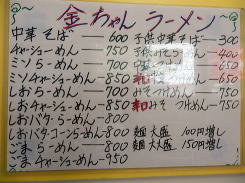 金ちゃん ラーメン
中華そば 600
チャーシューめん 750
ミソらーめん 700
ミソチャーシューめん 850
しおらーめん 700
しおチャーシューめん 850
しおバターらーめん 800
しおバターコーンらーめん 800
ごまらーめん 800
ごまチャーシューめん 950
子供中華そば 300
子供みそらーめん 400
650
750
みそつけめん 750
みそつけめん 850
麺大盛 100円増し
麺大大盛 150円増し